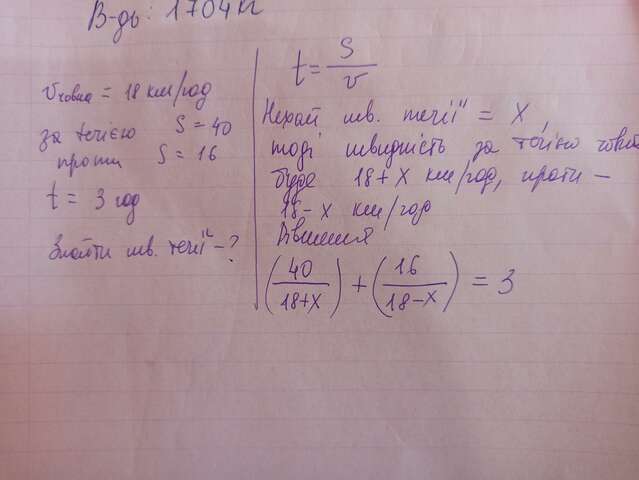 В-дь: 1704 кг
Vчовна = 18 км/год
за течією S = 40
проти S = 16
t = 3 год
Знайти шв. течії - ?
t = S / v
Нехай шв. течії = X,
тоді швидкість за течією човна
буде 18 + X км/год, проти –
18 – X км/год
Рівняння
(40 / 18+X) + (16 / 18-X) = 3